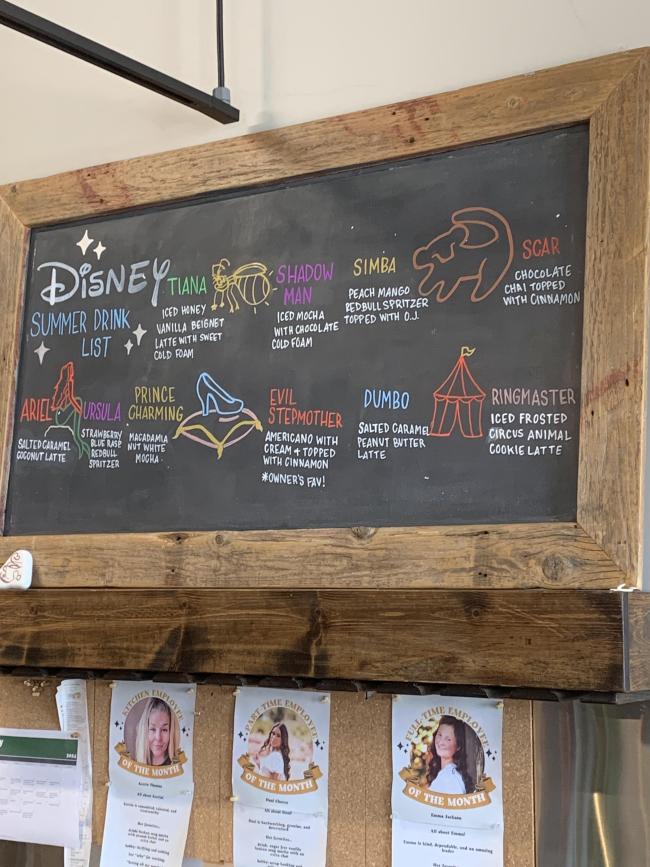 DISNEY
SUMMER DRINK
LIST
TIANA
ICED HONEY
VANILLA BEIGNET
LATTE WITH SWEET
COLD FOAM
SHADOW
MAN
ICED MOCHA
WITH CHOCOLATE
COLD FOAM
SIMBA
PEACH MANGO
REDBULL SPRITZER
TOPPED WITH O.J.
SCAR
CHOCOLATE
CHAI TOPPED
WITH CINNAMON
ARIEL
SALTED CARAMEL
COCONUT LATTE
URSULA
STRAWBERRY
BLUE RASP
REDBULL
SPRITZER
PRINCE
CHARMING
MACADAMIA
NUT WHITE
MOCHA
EVIL
STEPMOTHER
AMERICANO WITH
CREAM + TOPPED
WITH CINNAMON
*OWNER'S FAV!
DUMBO
SALTED CARAMEL
PEANUT BUTTER
LATTE
RINGMASTER
ICED FROSTED
CIRCUS ANIMAL
COOKIE LATTE
KITCHEN EMPLOYEE
OF THE MONTH
PART TIME EMPLOYEE
OF THE MONTH
FULL TIME EMPLOYEE
OF THE MONTH
Emma Jackson
All about Emma!
Emma is kind, dependable, and an amazing
leader
Her Favorites